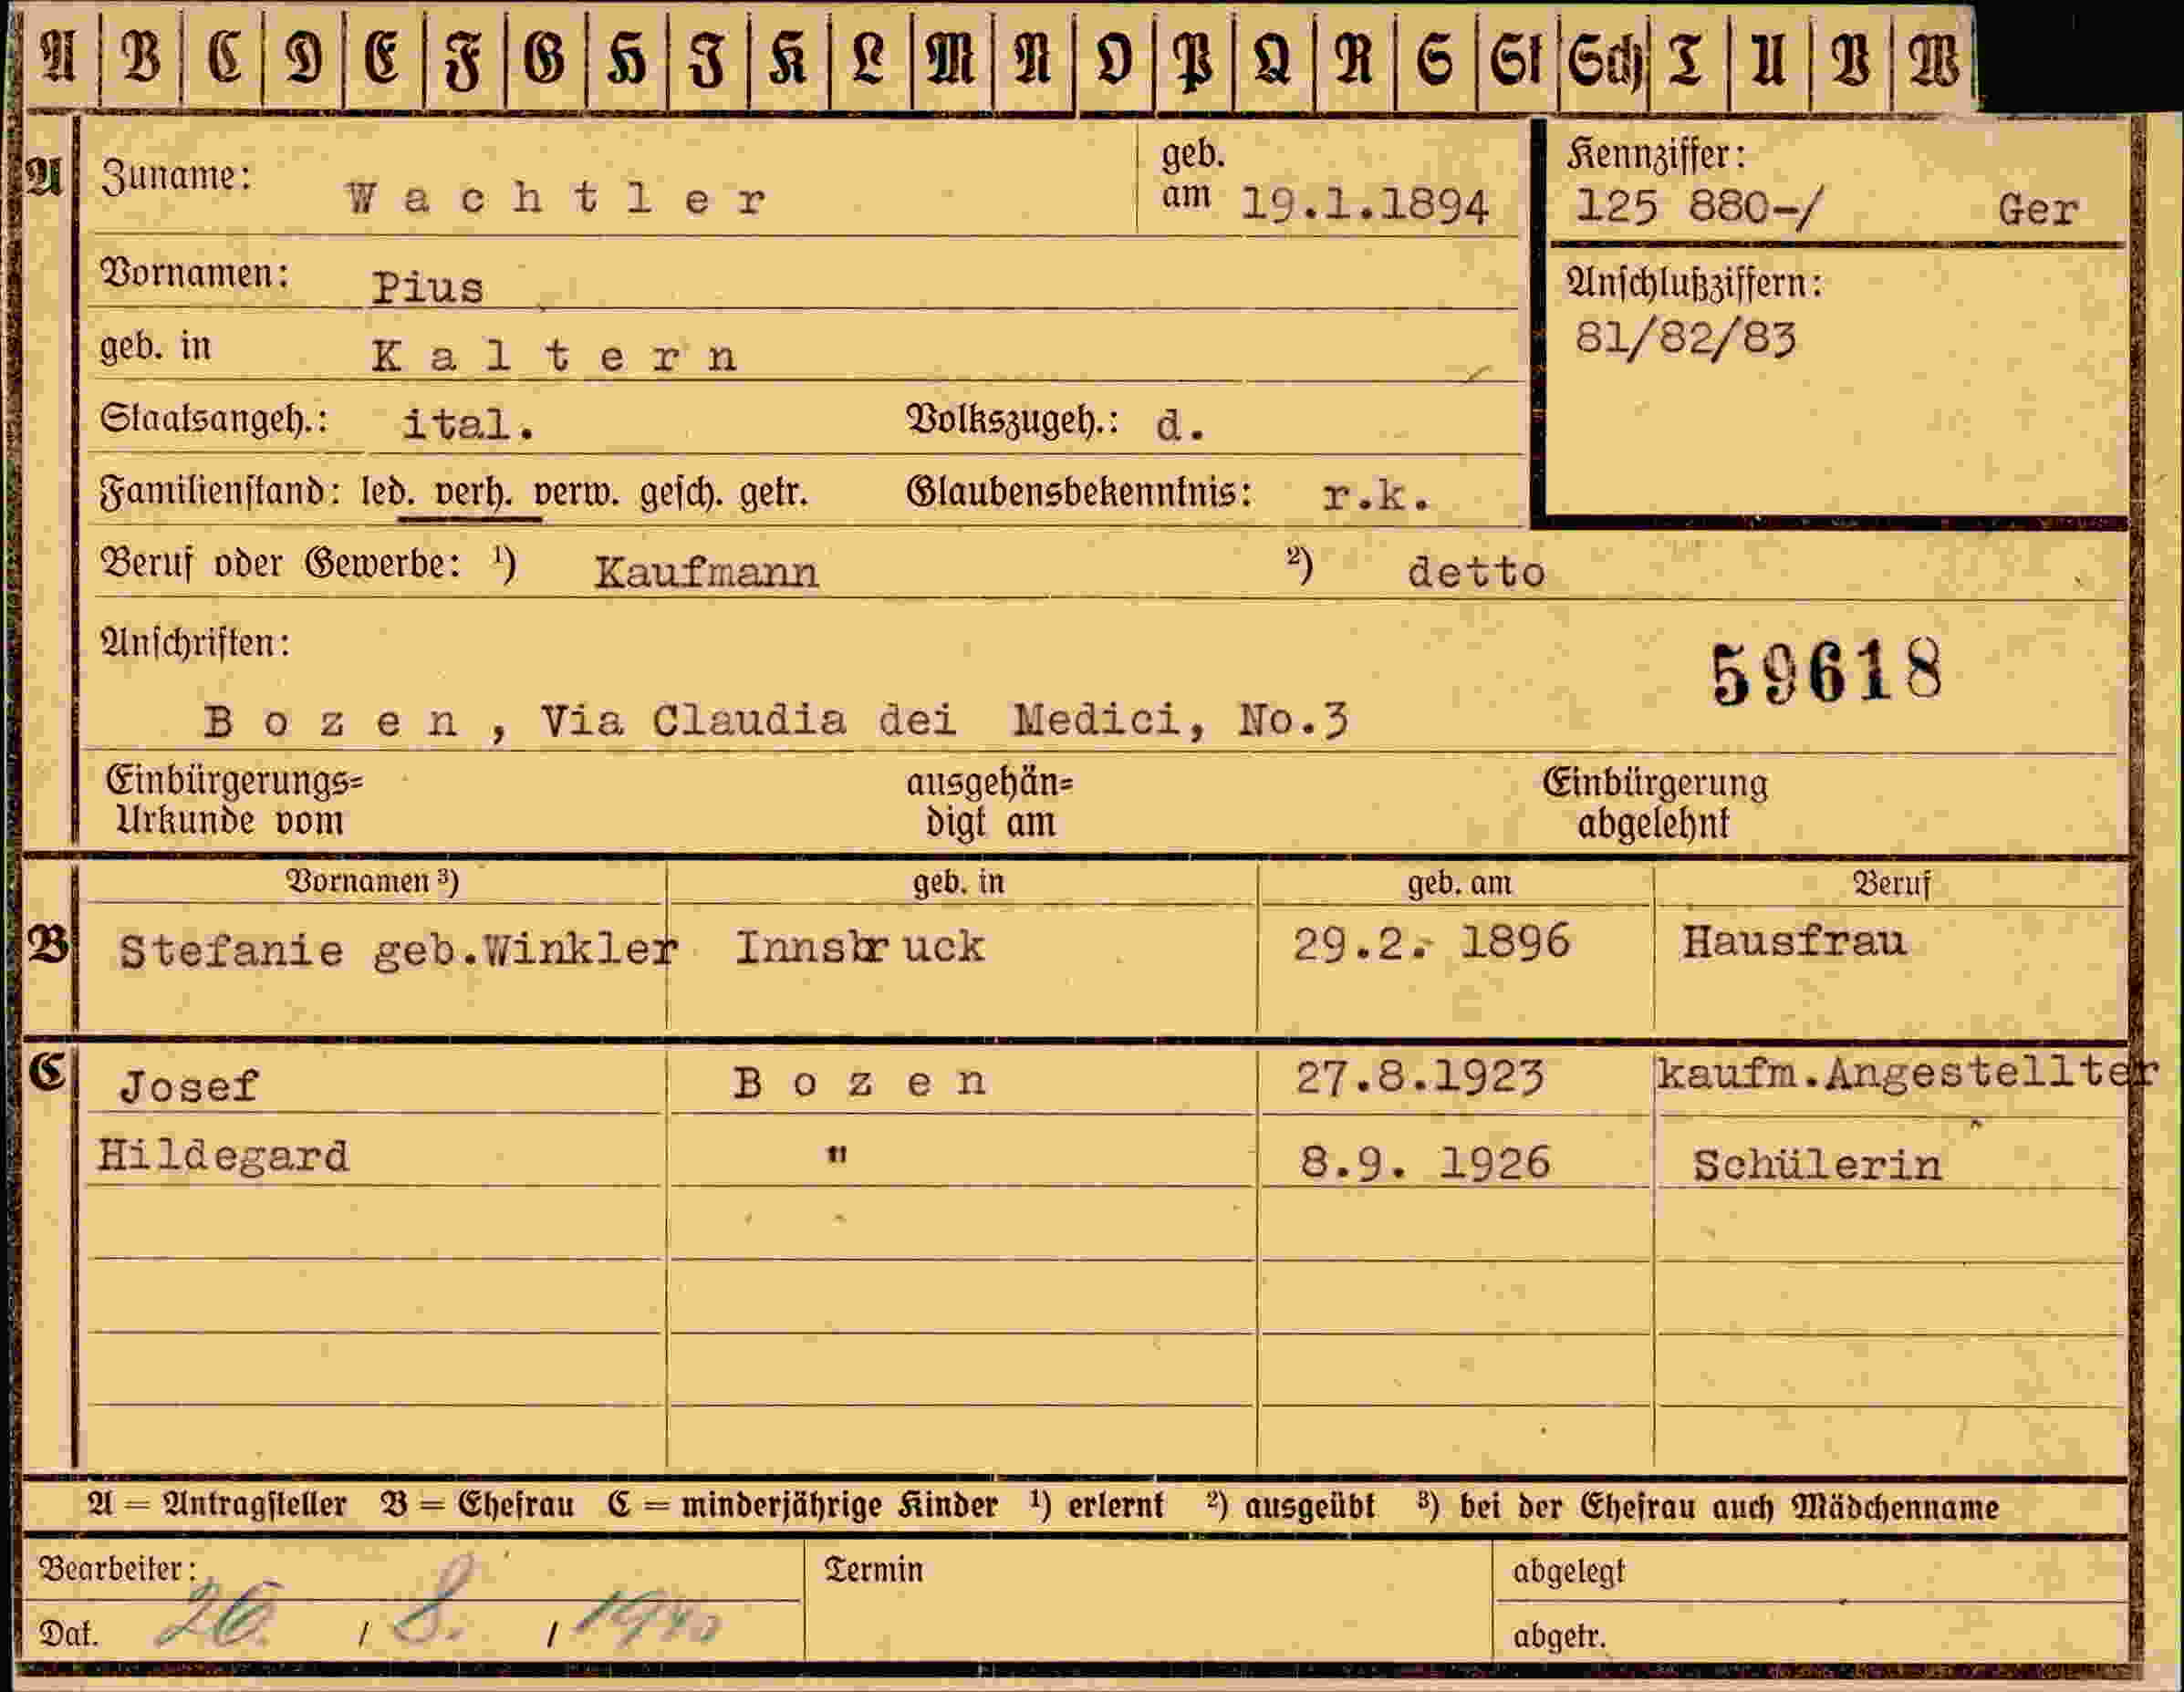 A B C D E F G H I K L M N O P Q R S St Sch T U V W
A Zuname: Wachtler geb. am 19.1.1894 Kennziffer:
125 880-/ Ger
Vornamen: Pius Anschlußziffern:
81/82/83
geb. in Kaltern
Staatsangeh.: ital. Volkszugeh.: d.
Familienstand: led. verh. verw. gesch. getr. Glaubensbekenntnis: r.k.
Beruf oder Gewerbe: ¹) Kaufmann ²) detto
Anschriften:
59618
Bozen, Via Claudia dei Medici, No.3
Einbürgerungs= ausgehän= Einbürgerung
Urkunde vom digt am abgelehnt
Vornamen ³) geb. in geb. am Beruf
B Stefanie geb.Winkler Innsbruck 29.2.- 1896 Hausfrau
C Josef Bozen 27.8.1923 kaufm.Angestellter
Hildegard " 8.9. 1926 Schülerin
A = Antragsteller B = Ehefrau C = minderjährige Kinder ¹) erlernt ²) ausgeübt ³) bei der Ehefrau auch Mädchenname
Bearbeiter: Termin abgelegt
Dat. 26. / 8. / 1940 abgetr.